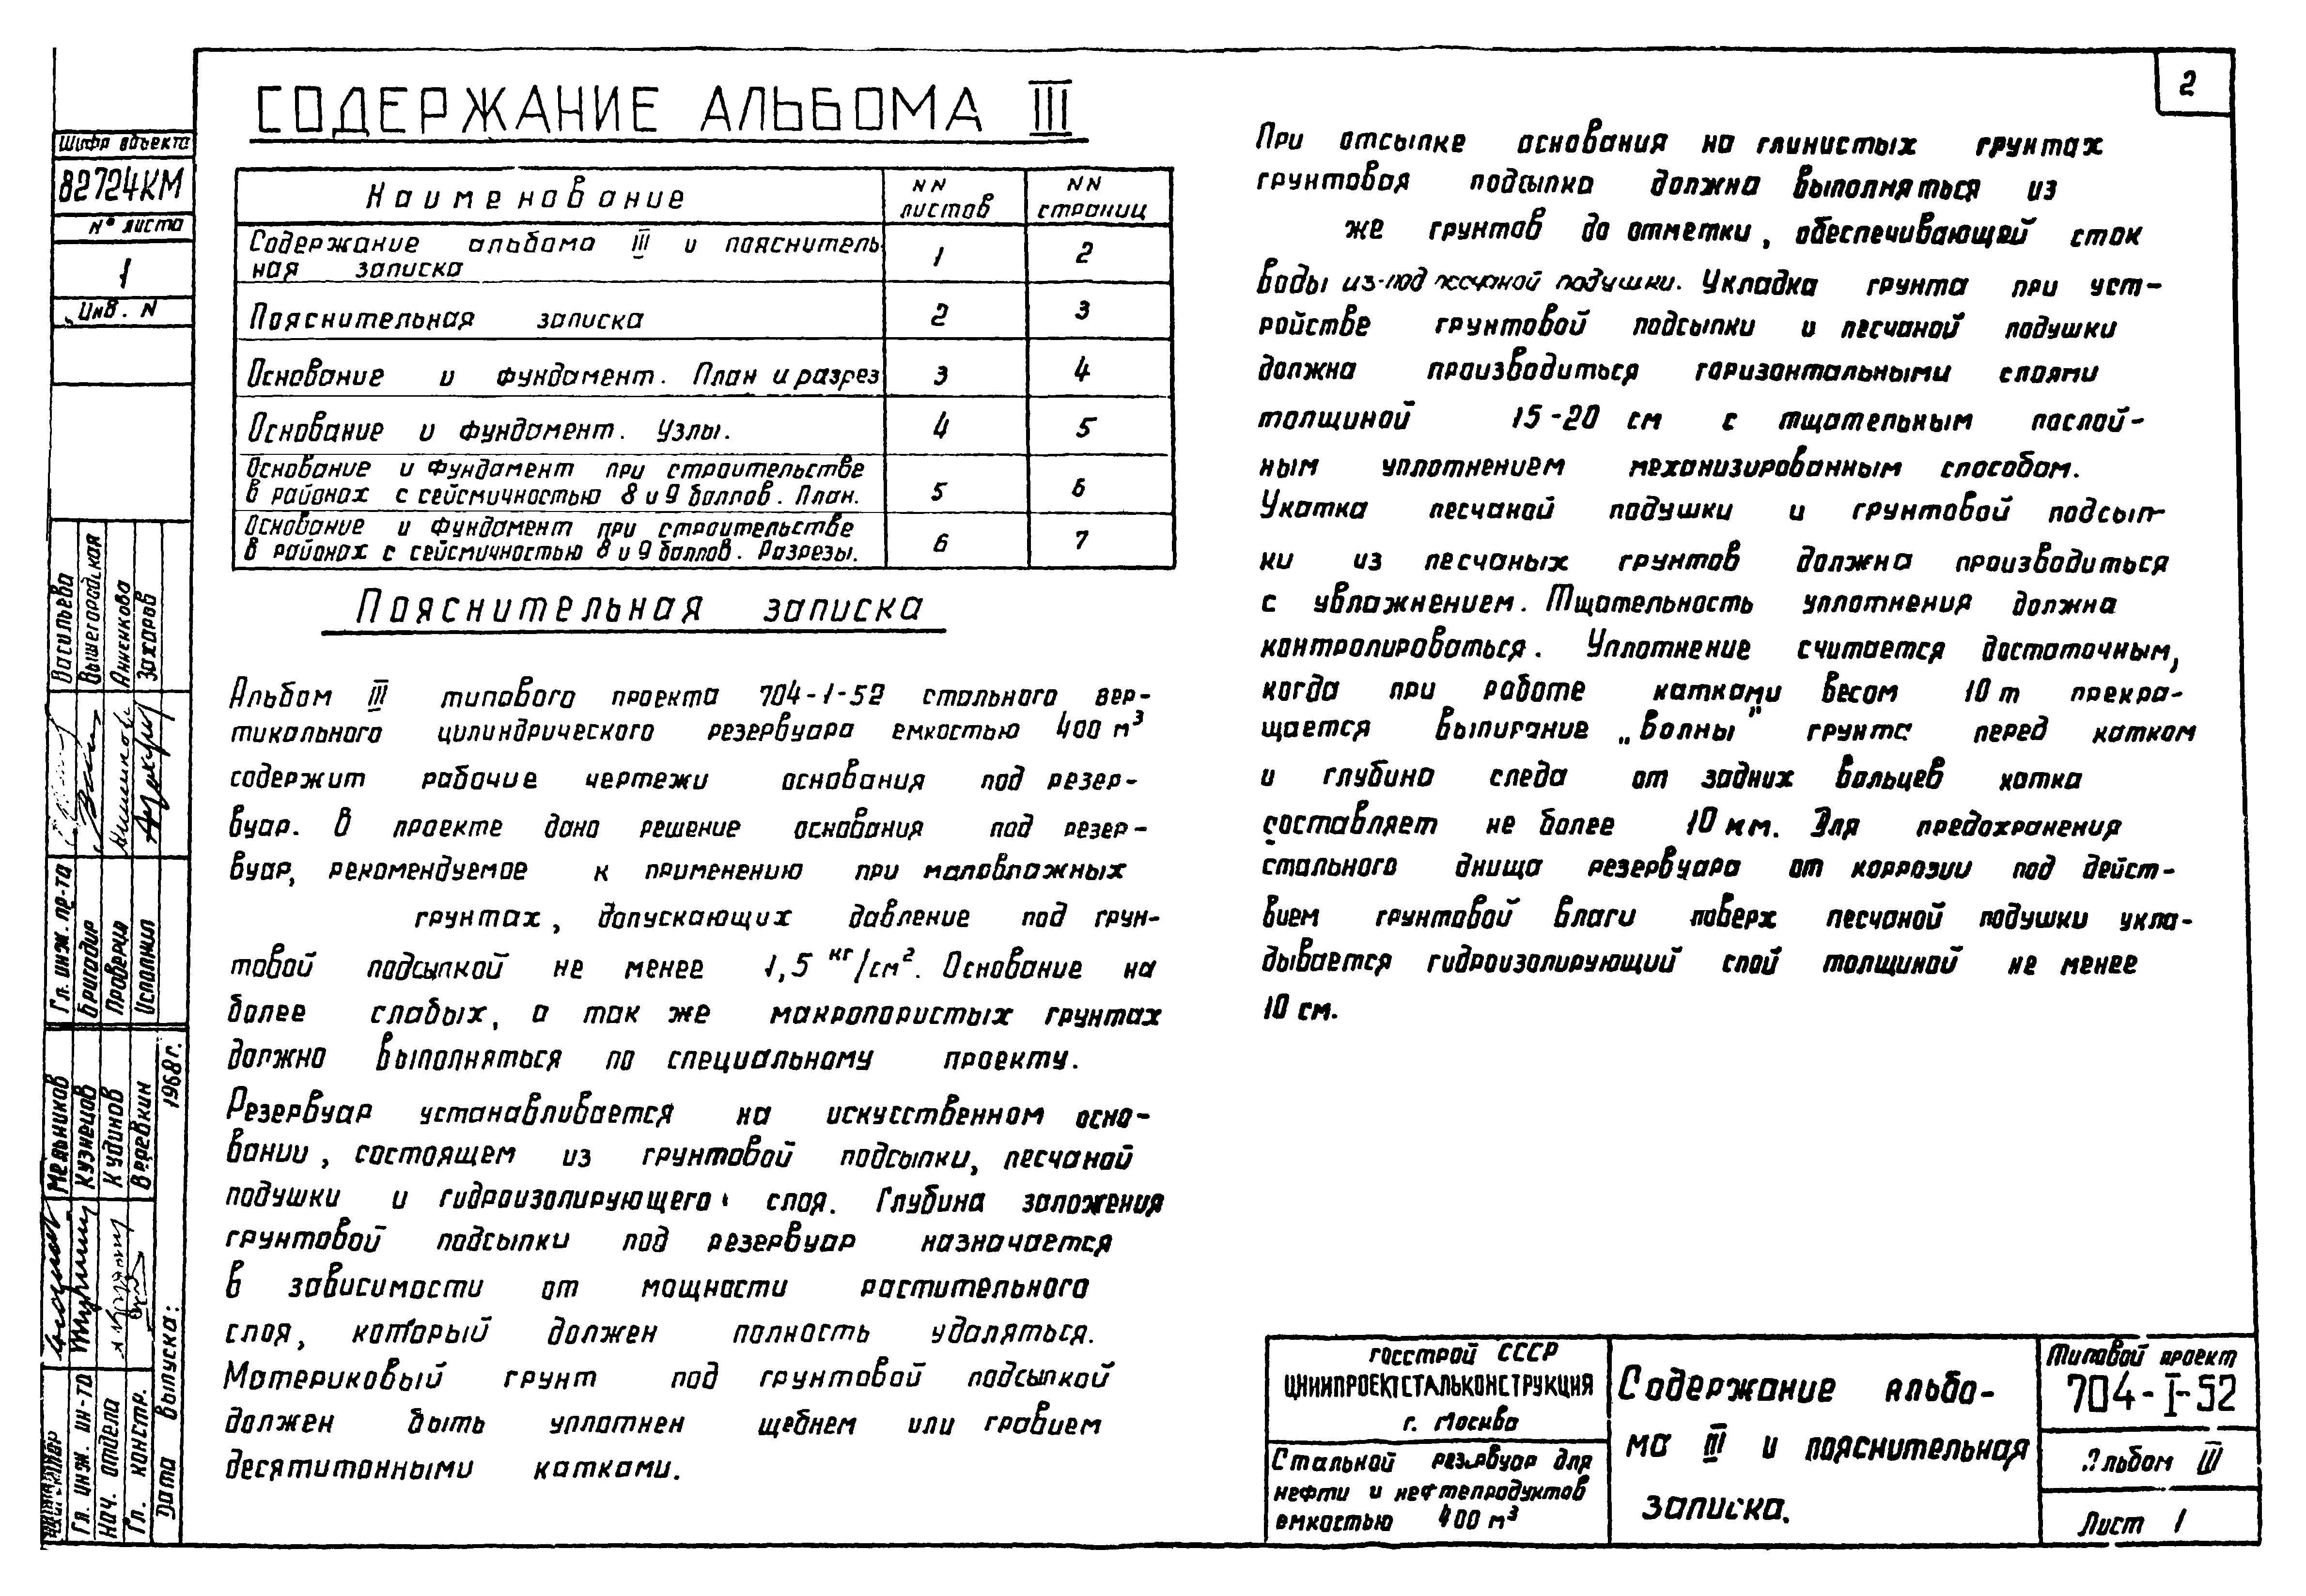 2
СОДЕРЖАНИЕ АЛЬБОМА III
Наименование
NN листов
NN страниц
Содержание альбома III и пояснитель
ная записка
1
2
Пояснительная записка
2
3
Основание и фундамент. План и разрез
3
4
Основание и фундамент. Узлы.
4
5
Основание и фундамент при строительстве
в районах с сейсмичностью 8 и 9 баллов. План.
5
6
Основание и фундамент при строительстве
в районах с сейсмичностью 8 и 9 баллов. Разрезы.
6
7
Пояснительная записка
Альбом III типового проекта 704-1-52 стального вер-
тикального цилиндрического резервуара емкостью 400 м³
содержит рабочие чертежи основания под резер-
вуар. В проекте дано решение основания под резер-
вуар, рекомендуемое к применению при маловлажных
грунтах, допускающих давление под грун-
товой подсыпкой не менее 1,5 кг/см². Основание на
более слабых, а так же макропористых грунтах
должно выполняться по специальному проекту.
Резервуар устанавливается на искусственном осно-
вании, состоящем из грунтовой подсыпки, песчаной
подушки и гидроизолирующего слоя. Глубина заложения
грунтовой подсыпки под резервуар назначается
в зависимости от мощности растительного
слоя, который должен полность удаляться.
Материковый грунт под грунтовой подсыпкой
должен быть уплотнен щебнем или гравием
десятитонными катками.
При отсыпке основания на глинистых грунтах
грунтовая подсыпка должна выполняться из
же грунтов до отметки, обеспечивающей сток
воды из-под песчаной подушки. Укладка грунта при уст-
ройстве грунтовой подсыпки и песчаной подушки
должна производиться горизонтальными слоями
толщиной 15-20 см с тщательным послой-
ным уплотнением механизированным способом.
Укатка песчаной подушки и грунтовой подсып-
ки из песчаных грунтов должна производиться
с увлажнением. Тщательность уплотнения должна
контролироваться. Уплотнение считается достаточным,
когда при работе катками весом 10 т прекра-
щается выпирание „волны" грунта перед катком
и глубина следа от задних вальцев катка
составляет не более 10 мм. Для предохранения
стального днища резервуара от коррозии под дейст-
вием грунтовой влаги поверх песчаной подушки укла-
дывается гидроизолирующий слой толщиной не менее
10 см.
Шифр объекта
82724КМ
N° листа
1
Инв. N
Васильева
Вышегородская
Анненкова
Захаров
Гл. инж. пр-та
Бригадир
Проверил
Исполнил
Мельников
Кузнецов
Кудинов
Веревкин
Гл. инж. ин-та
Нач. отдела
Гл. констр.
Дата выпуска: 1968г.
госстрой СССР
ЦНИИПРОЕКТСТАЛЬКОНСТРУКЦИЯ
г. Москва
Стальной резервуар для
нефти и нефтепродуктов
емкостью 400 м³
Содержание альбо-
ма III и пояснительная
записка.
Типовой проект
704-I-52
Альбом III
Лист 1